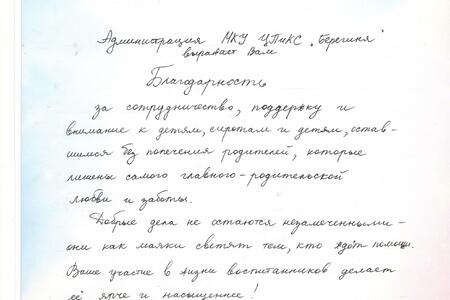 Администрация МКУ ЦПиКС „Берегиня"
выражает Вам
Благодарность
за сотрудничество, поддержку и
внимание к детям, сиротам и детям, остав-
шимся без попечения родителей, которые
лишены самого главного - родительской
любви и заботы.
Добрые дела не остаются незамеченными -
они как маяки светят тем, кто ждёт помощи.
Ваше участие в жизни воспитанников делает
её ярче и насыщеннее!